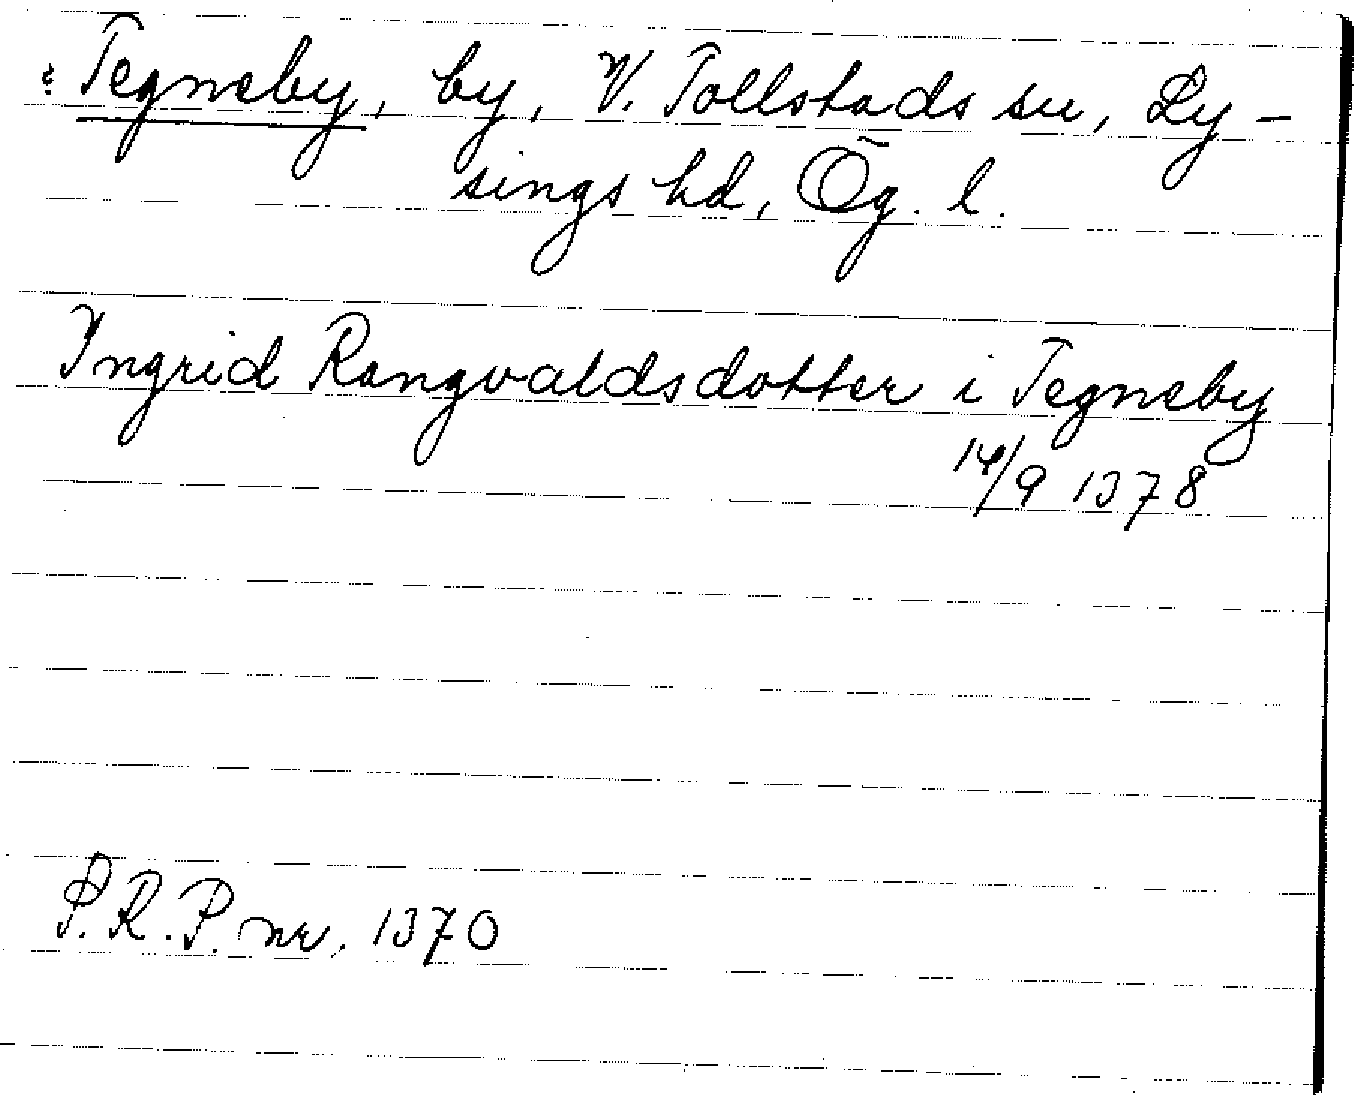 : Tegneby, by, V. Tollstads sn, Ly-
sings hd, Ög. l.
Ingrid Rangvaldsdotter i Tegneby
14/9 1378
P.R.P. nr. 1370